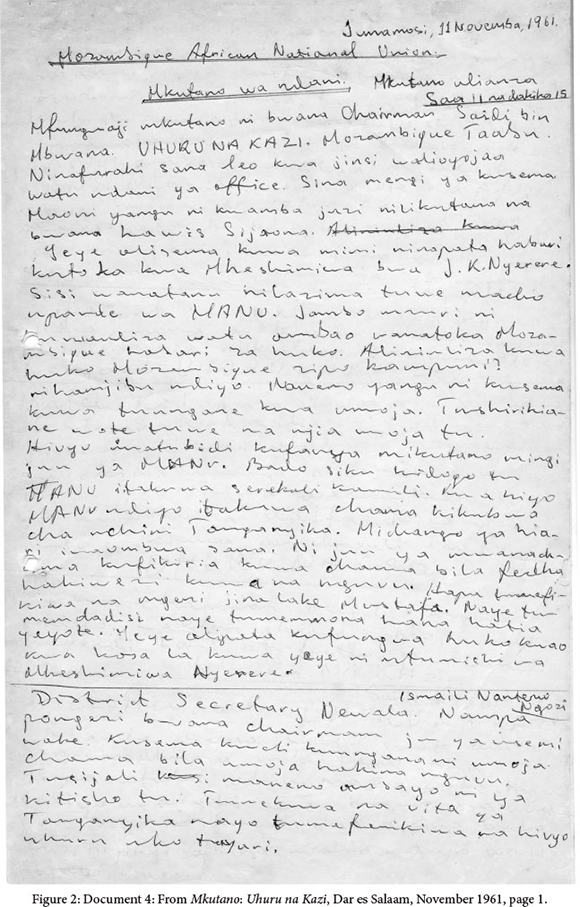 Jumamosi, 11 Novemba, 1961.
Mozambique African National Union.
Mkutano wa ndani. Mkutano ulianza
Saa 11 na dakika 15
Mfunguaji mkutano ni bwana Chairman Saidi bin
Mbwana. UHURU NA KAZI. Mozambique Taabu.
Ninafurahi sana leo kwa jinsi walivyojaa
watu ndani ya office. Sina mengi ya kusema
Maoni yangu ni kuamba juzi nilikutana na
bwana hawis Sijaona. Aliniuliza kuwa
Yeye alisema kuwa mimi ninapata habari
kutoka kwa Mheshimiwa bwa J.K. Nyerere.
Sisi wanatanu nilazima tuwe macho
upande wa MANU. Jambo zuri ni
kuwauliza watu ambao wanatoka Moza-
mbique habari za huko. Aliniuliza kuwa
huko Mozambique zipo kampuni?
nikamjibu ndiyo. Maneno yangu ni kusema
kuwa tuungane kwa umoja. Tushirikia-
ne wote tuwe na njia moja tu.
Hivyo inatubidi kufanya mikutano mingi
juu ya MANU. Bado siku kidogo tu
MANU itakuwa serekali kamili. Kwa hiyo
MANU ndiyo itakuwa chama kikubwa
cha nchini Tanganyika. Michango ya hia-
ri inaombwa sana. Ni juu ya mwanacha-
ma kufikiria kuwa chama bila fedha
hakiwezi kuwa na nguvu. Hapa tumefi-
kiwa na mgeni jina lake Mustafa. Naye tu-
memdadisi naye tumemwona hana hatia
yeyote. Yeye alipata kufungwa huko kwao
kwa kosa la kuwa yeye ni mtumishi wa
Mheshimiwa Nyerere.
Ismaili Nantemo
Ngozi
District Secretary Newala. Nampa
pongezi bwana chairman ju ya usemi
wake. Kusema kweli kuungana ni umoja.
chama bila umoja hakina nguvu.
Tusijali maneno ambayo ni ya
kitisho tu. Tumekuwa na vita ya
Tanganyika nayo tumefanikiwa na hivyo
uhuru uko tayari.
Figure 2: Document 4: From Mkutano: Uhuru na Kazi, Dar es Salaam, November 1961, page 1.